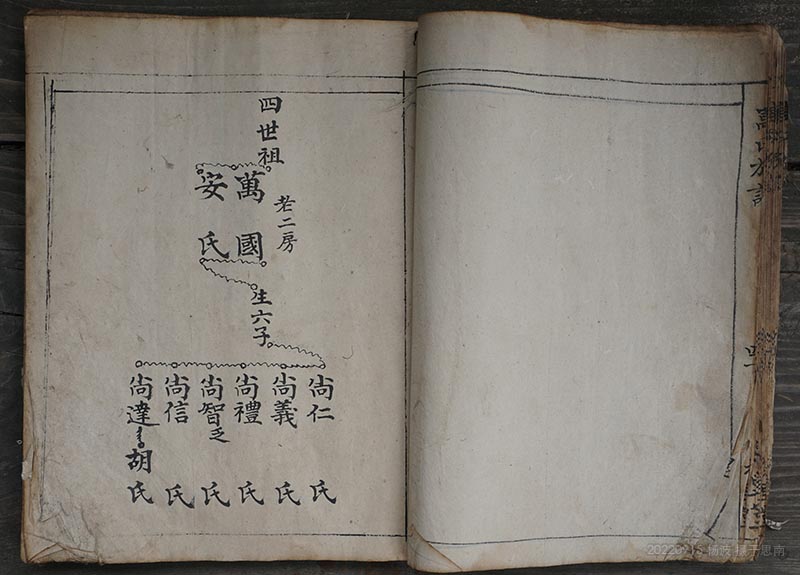 四世祖
老二房
萬國
安氏
生六子
尚仁 氏
尚義 氏
尚禮 氏
尚智乏 氏
尚信 氏
尚達 胡氏
杨波 摄于思南